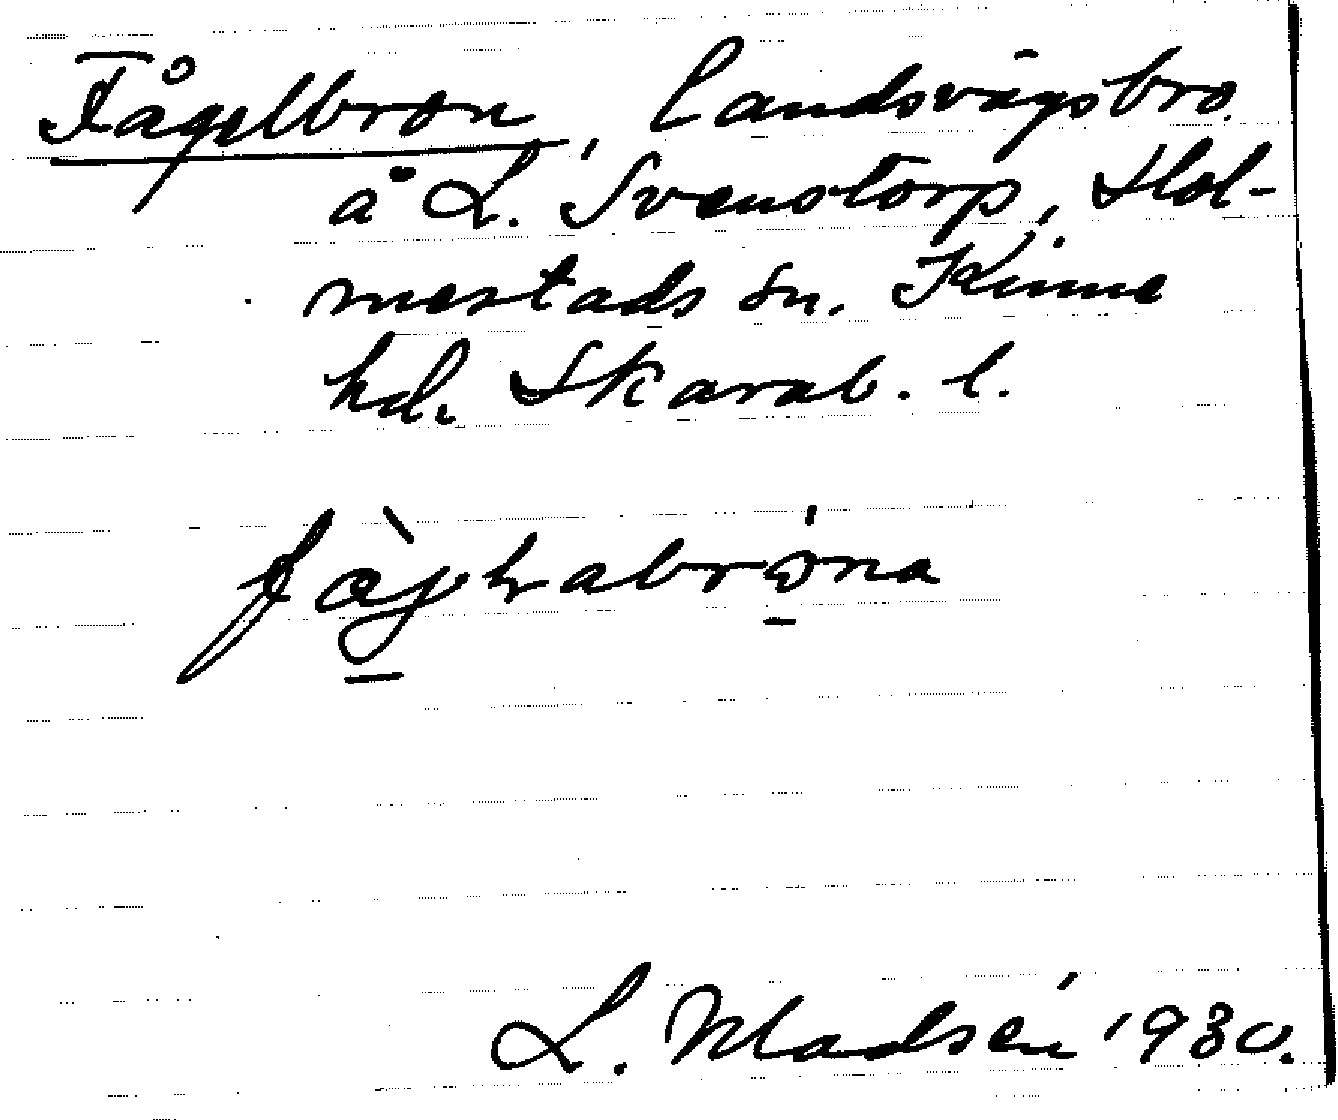 Fågelbron, Landsvägsbro
å L. Svenstorp, Hol-
mestads sn. Kinne
hd. Skarab. l.
L. Madsén 1930.